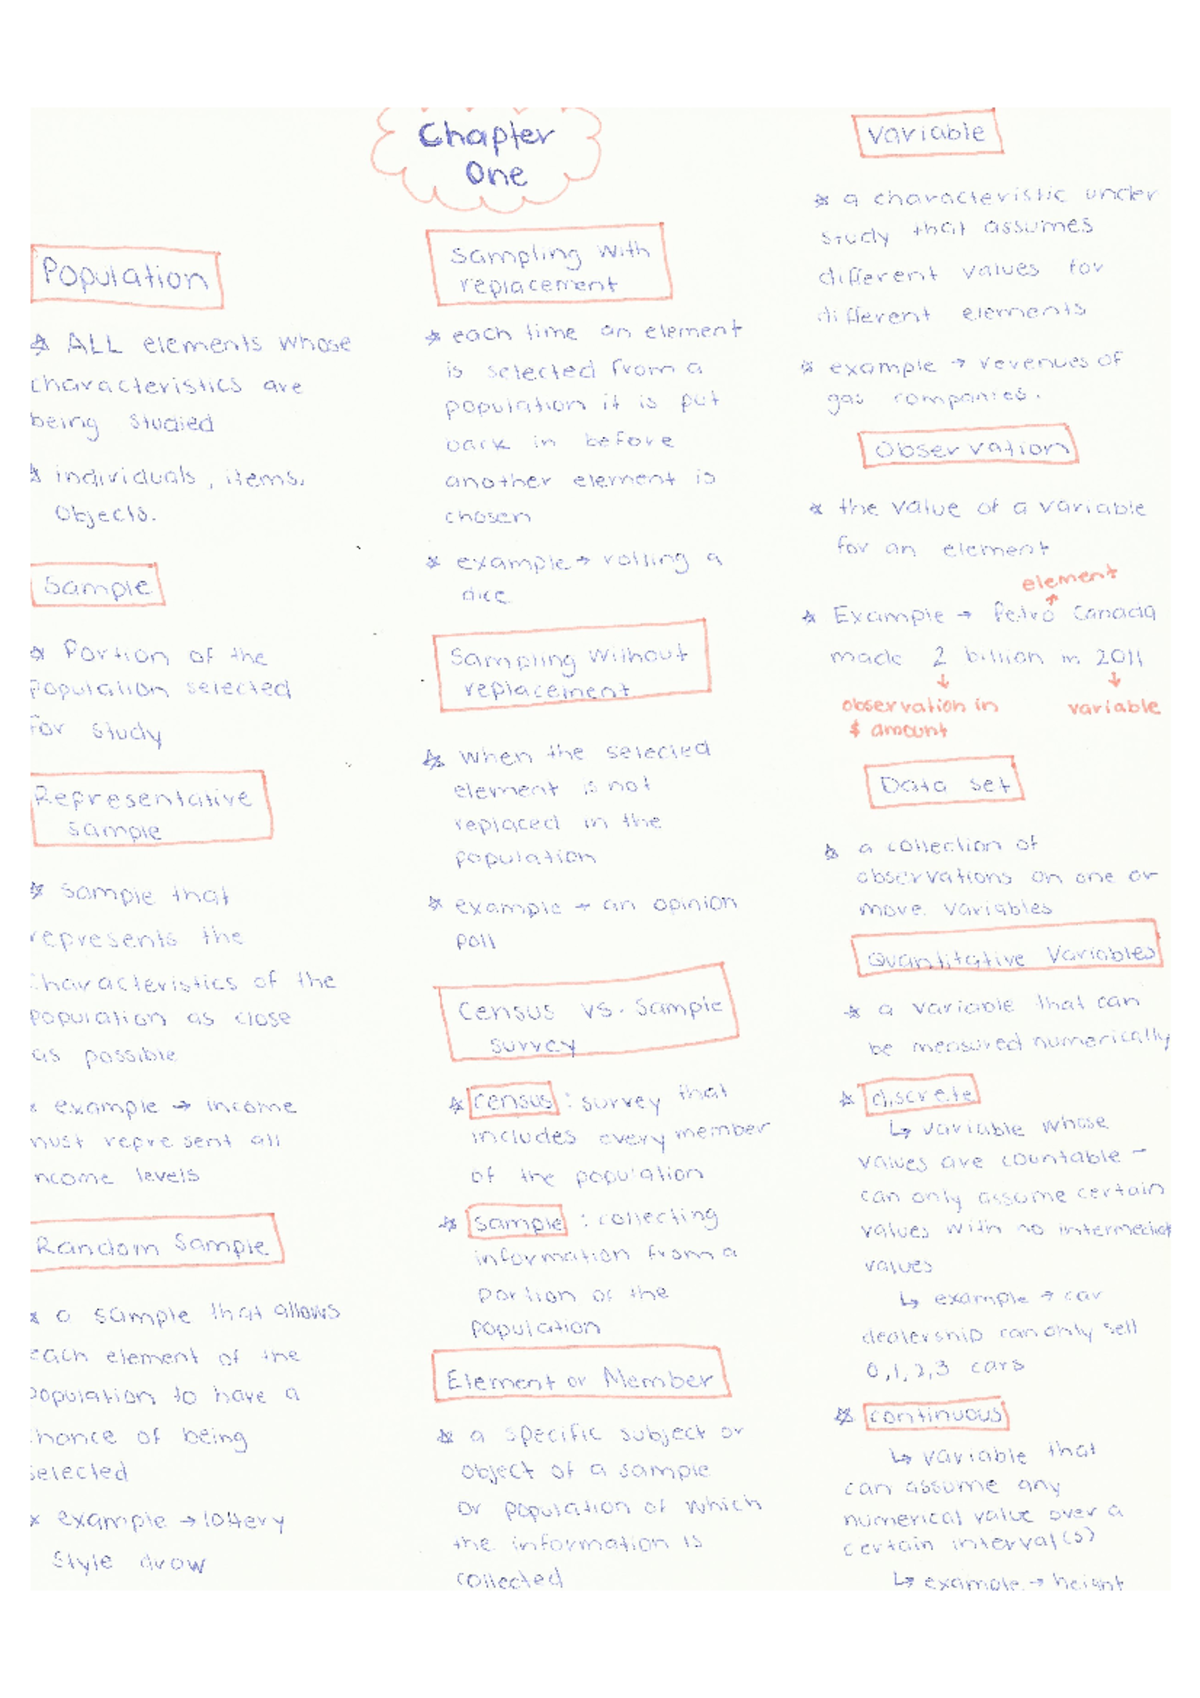 Chapter
One
Population
ALL elements whose
characteristics are
being studied
individuals, items,
objects.
Sample
Portion of the
population selected
for study
Representative
sample
sample that
represents the
characteristics of the
population as close
as possible
example → income
must represent all
income levels
Random Sample
a sample that allows
each element of the
population to have a
chance of being
selected
example → lottery
style draw
Sampling with
replacement
each time an element
is selected from a
population it is put
back in before
another element is
chosen
example → rolling a
dice
Sampling Without
replacement
when the selected
element is not
replaced in the
population
example → an opinion
poll
Census vs. Sample
survey
census : survey that
includes every member
of the population
sample : collecting
information from a
portion of the
population
Element or Member
a specific subject or
object of a sample
or population of which
the information is
collected
Variable
a characteristic under
study that assumes
different values for
different elements
example → revenues of
gas companies.
Observation
the value of a variable
for an element
element
Example → Petro Canada
made 2 billion in 2011
observation in
$ amount
variable
Data set
a collection of
observations on one or
more variables
Quantitative Variables
a variable that can
be measured numerically
discrete
↳ variable whose
values are countable -
can only assume certain
values with no intermediate
values
↳ example → car
dealership can only sell
0,1,2,3 cars
continuous
↳ variable that
can assume any
numerical value over a
certain interval(s)
↳ example → height